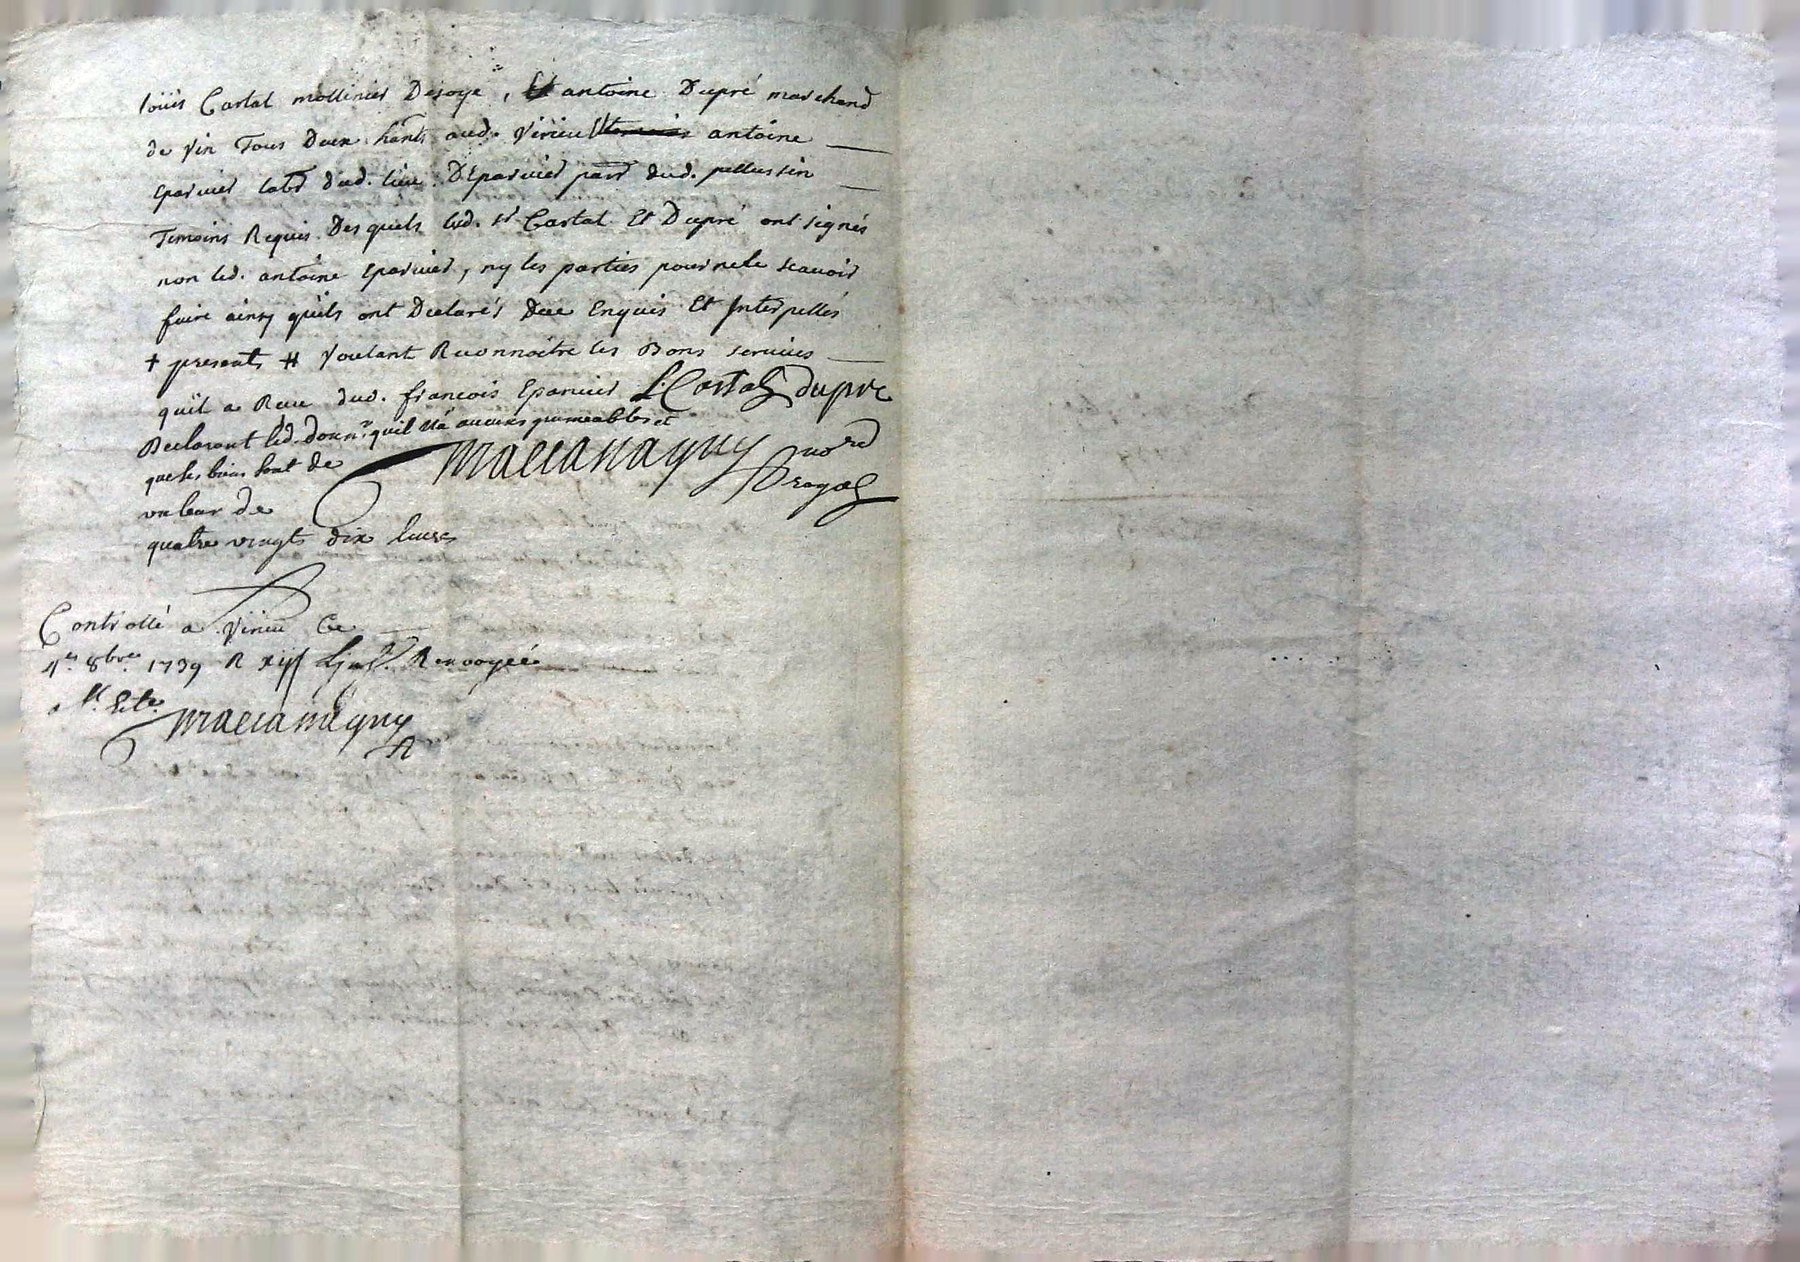 loüis Cartal mollinier Desoye, Et antoine Dupré marchand
de vin Tous Deux hants aud. Virieu antoine
Eparvier labr dud. lieu D'Eparvier parr dud. pellussin
Temoins Requis Desquels led. sr Cartal Et Dupré ont signés
non led. antoine Eparvier, ny les parties pour ne le scavoir
faire ainsy quils ont Declarés Due Enquis Et Interpellés
+ presents # voulant Reconnoitre les Bons services
quil a Receu dud. francois Eparvier L. Cartal dupre
Declarant led. donnr quil n'a aucuns immeubles et
que ses biens sont de
valleur de
quatre vingts dix livres
Mallanagny no.re royal
Controllé a Virieu Ce
4e 8bre 1739 R Renvoyeé
Mallanagny